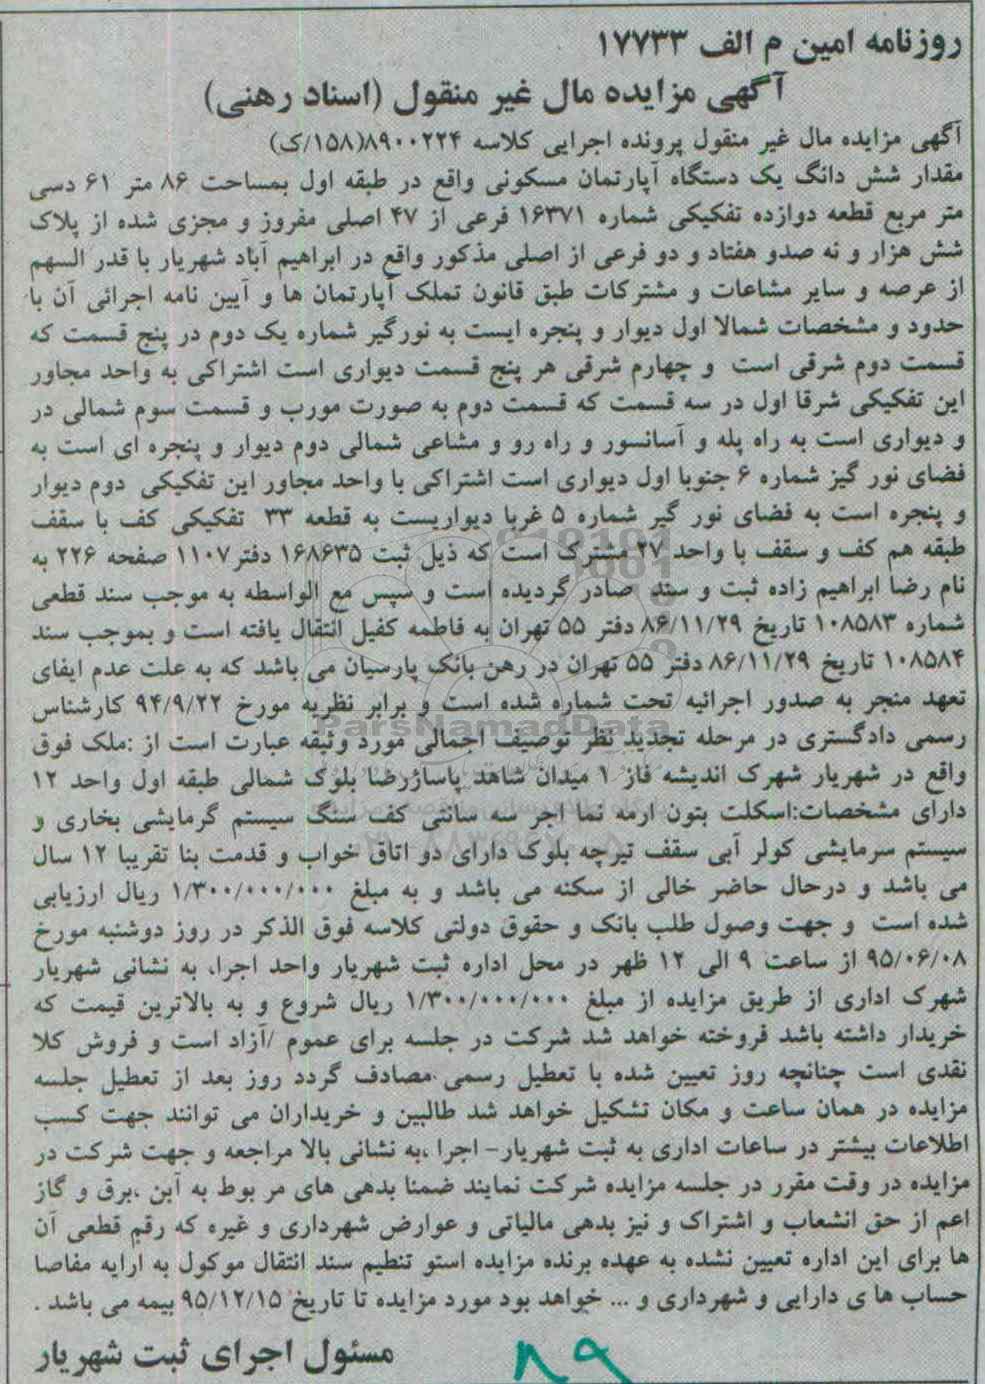 روزنامه امین م الف ۱۷۷۳۳
آگهی مزایده مال غیر منقول (اسناد رهنی)
آگهی مزایده مال غیر منقول پرونده اجرایی کلاسه ۸۹۰۰۲۲۴(۱۵۸/ک)
مقدار شش دانگ یک دستگاه آپارتمان مسکونی واقع در طبقه اول بمساحت ۸۶ متر ۶۱ دسی
متر مربع قطعه دوازده تفکیکی شماره ۱۶۳۷۱ فرعی از ۴۷ اصلی مفروز و مجزی شده از پلاک
شش هزار و نه صدو هفتاد و دو فرعی از اصلی مذکور واقع در ابراهیم آباد شهریار با قدر السهم
از عرصه و سایر مشاعات و مشترکات طبق قانون تملک آپارتمان ها و آیین نامه اجرائی آن با
حدود و مشخصات شمالا اول دیوار و پنجره ایست به نورگیر شماره یک دوم در پنج قسمت که
قسمت دوم شرقی است و چهارم شرقی هر پنج قسمت دیواری است اشتراکی به واحد مجاور
این تفکیکی شرقا اول در سه قسمت که قسمت دوم به صورت مورب و قسمت سوم شمالی در
و دیواری است به راه پله و آسانسور و راه رو و مشاعی شمالی دوم دیوار و پنجره ای است به
فضای نور گیز شماره ۶ جنوبا اول دیواری است اشتراکی با واحد مجاور این تفکیکی دوم دیوار
و پنجره است به فضای نور گیر شماره ۵ غربا دیواریست به قطعه ۳۳ تفکیکی کف با سقف
طبقه هم کف و سقف با واحد ۲۷ مشترک است که ذیل ثبت ۱۶۸۶۳۵ دفتر۱۱۰۷ صفحه ۲۲۶ به
نام رضا ابراهیم زاده ثبت و سند صادر گردیده است و سپس مع الواسطه به موجب سند قطعی
شماره ۱۰۸۵۸۳ تاریخ ۸۶/۱۱/۲۹ دفتر ۵۵ تهران به فاطمه کفیل انتقال یافته است و بموجب سند
۱۰۸۵۸۴ تاریخ ۸۶/۱۱/۲۹ دفتر ۵۵ تهران در رهن بانک پارسیان می باشد که به علت عدم ایفای
تعهد منجر به صدور اجرائیه تحت شماره شده است و برابر نظریه مورخ ۹۴/۹/۲۲ کارشناس
رسمی دادگستری در مرحله تجدید نظر توصیف اجمالی مورد وثیقه عبارت است از :ملک فوق
واقع در شهریار شهرک اندیشه فاز ۱ میدان شاهد پاساژرضا بلوک شمالی طبقه اول واحد ۱۲
دارای مشخصات:اسکلت بتون ارمه نما اجر سه سانتی کف سنگ سیستم گرمایشی بخاری و
سیستم سرمایشی کولر آبی سقف تیرچه بلوک دارای دو اتاق خواب و قدمت بنا تقریبا ۱۲ سال
می باشد و درحال حاضر خالی از سکنه می باشد و به مبلغ ۱/۳۰۰/۰۰۰/۰۰۰ ریال ارزیابی
شده است و جهت وصول طلب بانک و حقوق دولتی کلاسه فوق الذکر در روز دوشنبه مورخ
۹۵/۰۶/۰۸ از ساعت ۹ الی ۱۲ ظهر در محل اداره ثبت شهریار واحد اجرا، به نشانی شهریار
شهرک اداری از طریق مزایده از مبلغ ۱/۳۰۰/۰۰۰/۰۰۰ ریال شروع و به بالاترین قیمت که
خریدار داشته باشد فروخته خواهد شد شرکت در جلسه برای عموم /آزاد است و فروش کلا
نقدی است چنانچه روز تعیین شده با تعطیل رسمی مصادف گردد روز بعد از تعطیل جلسه
مزایده در همان ساعت و مکان تشکیل خواهد شد طالبین و خریداران می توانند جهت کسب
اطلاعات بیشتر در ساعات اداری به ثبت شهریار- اجرا ،به نشانی بالا مراجعه و جهت شرکت در
مزایده در وقت مقرر در جلسه مزایده شرکت نمایند ضمنا بدهی های مر بوط به آبن ،برق و گاز
اعم از حق انشعاب و اشتراک و نیز بدهی مالیاتی و عوارض شهرداری و غیره که رقم قطعی آن
ها برای این اداره تعیین نشده به عهده برنده مزایده استو تنظیم سند انتقال موکول به ارایه مفاصا
حساب ها ی دارایی و شهرداری و ... خواهد بود مورد مزایده تا تاریخ ۹۵/۱۲/۱۵ بیمه می باشد .
مسئول اجرای ثبت شهریار
۸۹
ParsNamadData